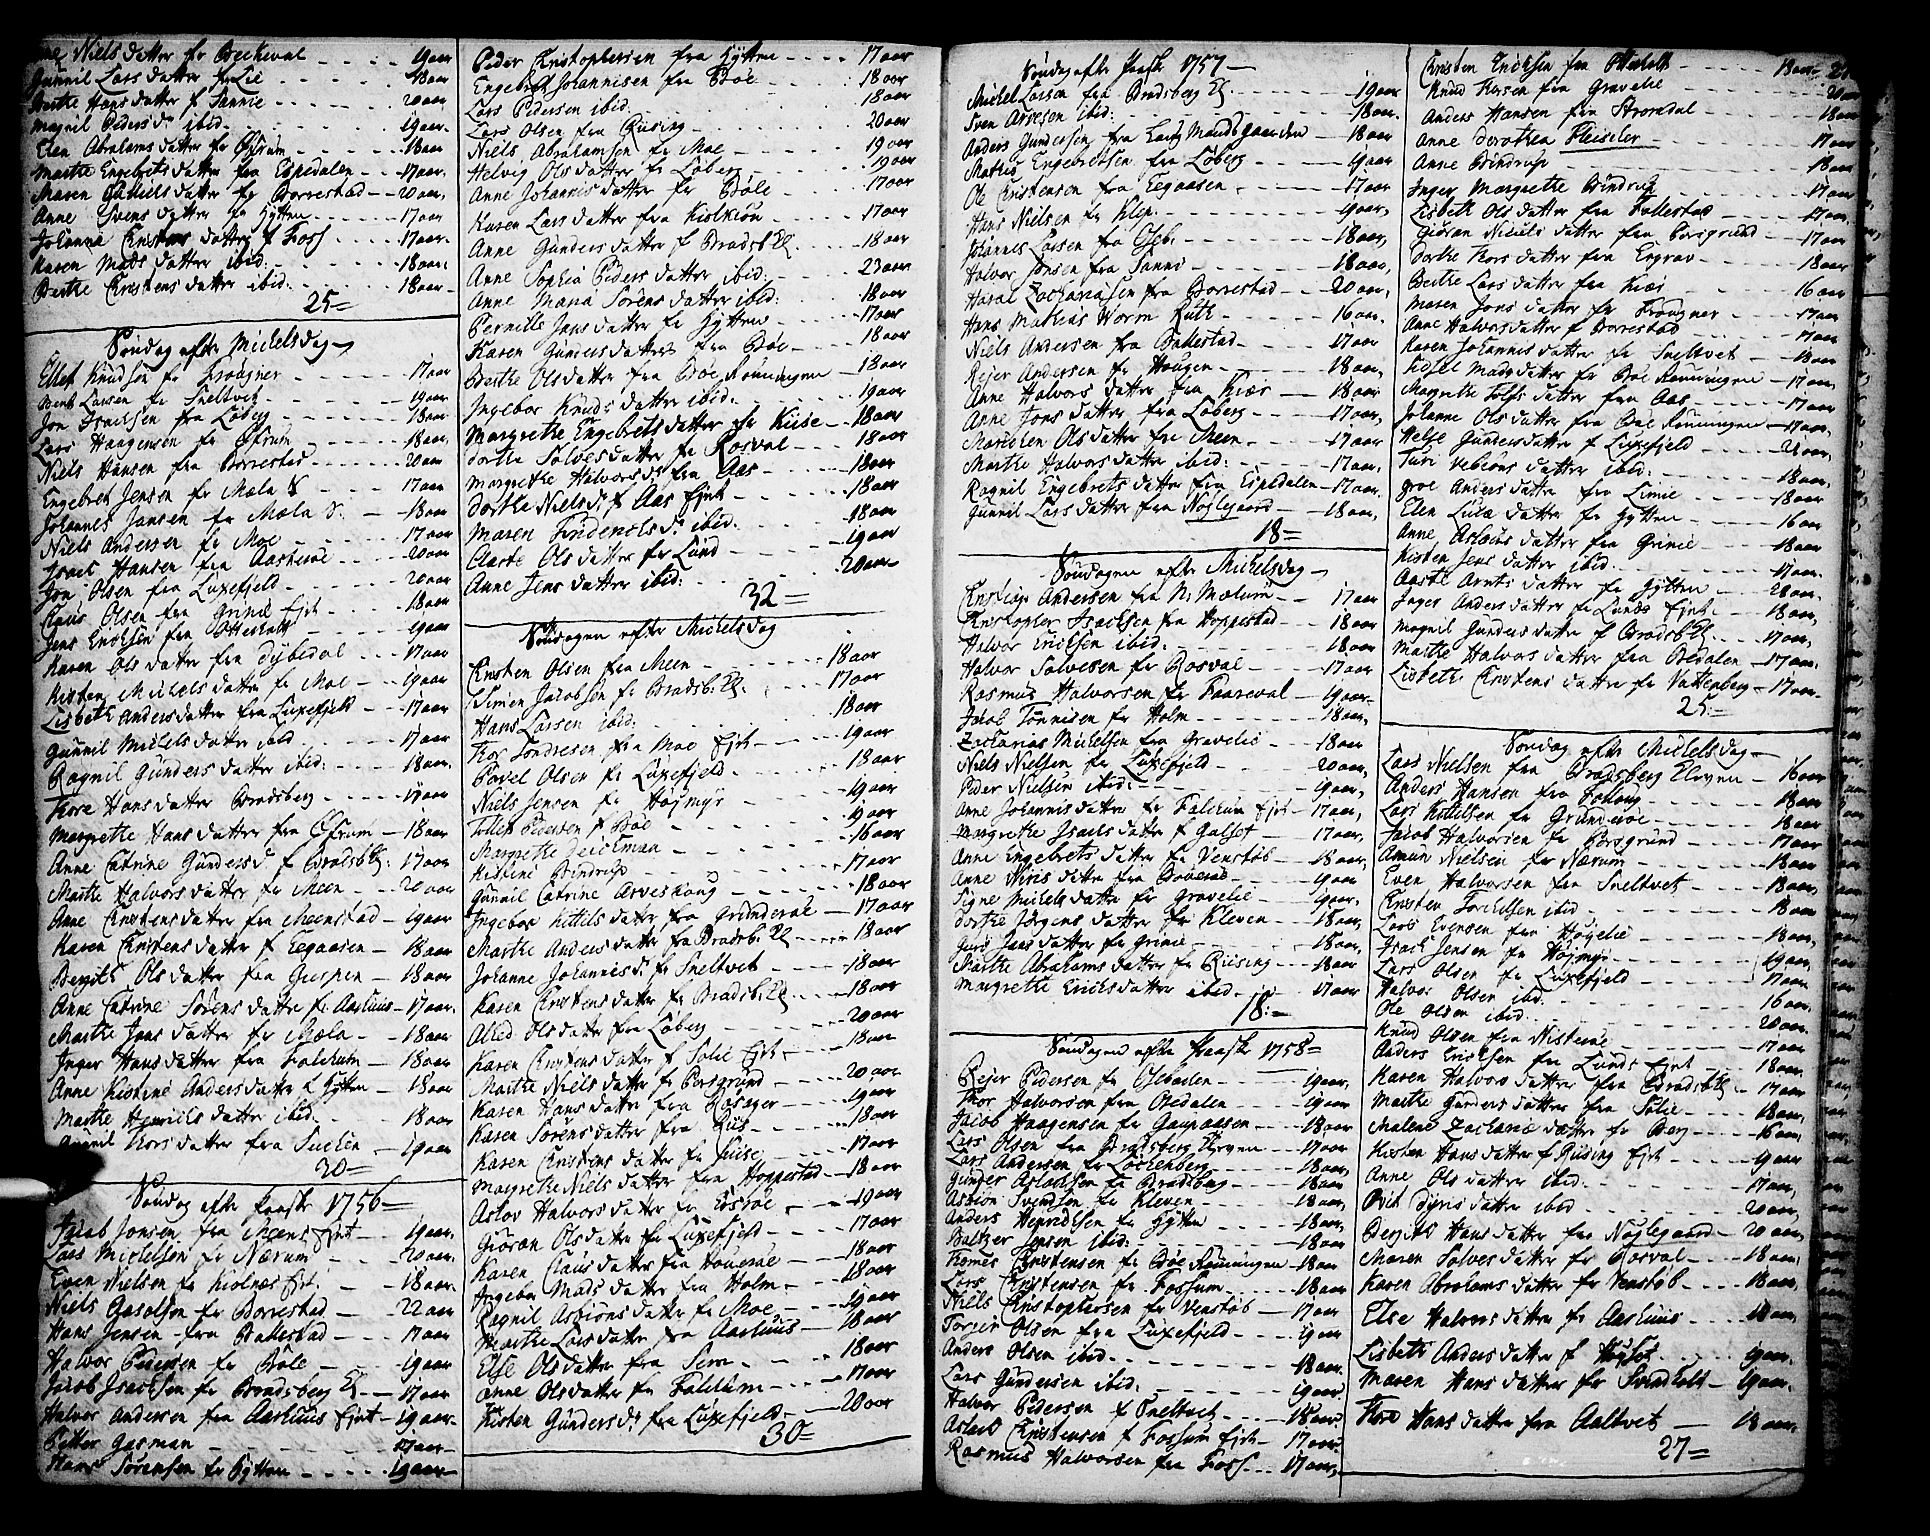 Niels datter fr Becheval - - - - 19aar
Gunnil Lars datter fr Lie - - - 18aar
Berthe Hans datter f Sannie - - - - 20aar
Magnil Peders dr ibid - - - - 19aar
Elen Abrahams datter fr Øfrum - - - 18aar
Marthe Engebrets datter fra Espedalen - - 17aar
Maren Gabriels datter fr Borrestad - - 20aar
Anne Svens datter fr Hytten - - - 17aar
Johanne Christens datter f Foss - - - 17aar
Karen Mads datter ibid: - - - 18aar
Berthe Christens datter ibid: - - - 18aar
25=
Søndag efter Michelsdag
Ellef Knudsen fr Frougner - - - 17aar
Bent Larsen fr Sneltvet - - - 19aar
Jon Isachsen fra Løberg - - - 18aar
Lars Haagensen fr Øfrum - - - 18aar
Niels Hansen fra Borrestad - - - 20aar
Engebret Jensen fr Mæla - - - 17aar
Johannes Jansen fr Mæla - - 18aar
Niels Andersen fr Moe - - - 17aar
Israel Hansen fra Aasterae - - - 20aar
Jon Olsen fra Luxefjeld - - - 20aar
Claus Olsen fra Grinie Ejet - - - 18aar
Jens Erichsen fra Otterholt - - - 19aar
Karen Ols datter fra Dybedal - - 17aar
Kirsten Michels datter fr Moe - - 19aar
Lisbeth Anders datter fra Luxefjeld - - 17aar
Gunnil Michels datter ibid - - - 17aar
Ragnil Gunders datter ibid: - - - 18aar
Thore Hans datter Bradsberg - - - 19aar
Margrethe Hans datter fra Øfrum - - 18aar
Anne Catrine Gunders d f Bradsb: 17aar
Marthe Halvors datter fr Meen - - 20aar
Anne Christens datter fra Meenstad - 19aar
Karen Christens datter f Eegaasen - - 18aar
Bergit Ols datter fra Gierpen - - 18aar
Anne Catrine Sørens datter fr Aarhuus - 17aar
Marthe Jans datter fr Mæla - - 18aar
Inger Hans datter fra Falchum - - 18aar
Anne Kistine Anders datter f Hytten - 18aar
Marthe Henrichs datter ibid. - - - 18aar
Gunnil Thors datter fra - - 19aar
30=
Søndag efter Paaske 1756=
Jacob Jonsen fra Meens Ejet - - 19aar
Lars Michelsen fr Nærum - - - 20aar
Even Nielsen fr Kiolnæs Ejet. - - 18aar
Niels Gasolsen fr Borrestad - - - 22aar
Hans Jensen fra Bakkestad - - - 17aar
Halvor Pedersen fr Bøle - - - 19aar
Jacob Isachsen fr Bradsberg - - 17aar
Halvor Andersen fra Aarhuus Ejet - 19aar
Petter Gasman - - - - 17aar
Hans Sørensen fr Hytten - - - 19aar
Peder Christophersen fra Hytten - - - 17aar
Engebret Johannisen fra Bøe - - - 18aar
Lars Pedersen ibid: - - - 18aar
Lars Olsen fra Riising - - - 20aar
Niels Abrahamsen fr Moe - - - 19aar
Helvig Ols datter fr Løberg - - - 19aar
Anne Johannis datter fr Bøle - - - 17aar
Karen Lars datter fra - - - 17aar
Anne Gunders datter f Bradsb - - 18aar
Anne Sophia Peders datter ibid: - - 23aar
Anne Maria Sørens datter ibid: - - 18aar
Pernille Jans datter fr Hytten - - 17aar
Karen Gunders datter fra Bøe - - 18aar
Berthe Ols datter fra Bøe Rønningen - 18aar
Ingebor Knuds datter ibid. - - - 19aar
Margrethe Engebrets datter fr Kiise - 18aar
Dorthe Solves datter fr Rosval - - - 18aar
Margrethe Halvors dr fra Aas - - - 18aar
Dorthe Niels dr f Aas Ejet - - - 18aar
Maren Findenols dr ibid: - - - 18aar
Aaste Ols datter fr Lund - - - 19aar
Anne Jens datter ibid: - - - 20aar
32=
Søndagen efter Michelsdag
Christen Olsen fra Meen - - - 18aar
Simen Jacobsen fr Bradsb. - - - 17aar
Hans Larsen ibid. - - - 18aar
Thor Sondresen fra Moe Ejet - - - 19aar
Povel Olsen fr Luxefjeld - - - 18aar
Niels Jensen fr Højmyr - - - 19aar
Tollef Pedersen f Bøe - - - 19aar
Margrethe Deichman - - - 16aar
Kistine Bindrup - - - 17aar
Gunnil Catrine Arveskoug - - - 18aar
Ingebor Kittils dater fra Grønderøe - 17aar
Marthe Anders datter fra Bradsb. - - 18aar
Johanne Johannis dr fr Sneltvet - - - 18aar
Karen Christens datter fr Bradsb. - - 18aar
Alhed Ols datter fra Løberg - - - 20aar
Karen Christens datter f Solie Ejet - - 18aar
Marthe Niels datter fr Porsgrund - - 20aar
Karen Hans datter fra Rosager - - 19aar
Karen Sørens datter fra Riis - - - 18aar
Karen Christens datter fr Kiise - - 17aar
Margrethe Niels datter fra Hoppestad - 18aar
Aslov Halvors datter fr - - 19aar
Giøran Ols datter fr Luxefjeld - - - 17aar
Karen Claus datter fra Houerøe - - - 18aar
Ingebor Mads datter fra Holm - - - 18aar
Ragnil Asbiøns datter fr Moe - - - 19aar
Marthe Lars datter fra Aarhuus - - 18aar
Else Ols datter fra Sem - - - 18aar
Anne Ols datter fra Falchum - - - 17aar
Kisten Gunders dr fra Luxefjeld - - 20aar
30=
Søndag efter Paaske 1757
Michel Larsen fra Bradsberg - - - 19aar
Sven Arvesen ibid: - - - 18aar
Anders Gundersen fra Laug Mands gaarden - 18aar
Mathis Engebretsen fra Løberg - - - 19aar
Ole Christensen fra Eegaasen - - - 17aar
Hans Nielsen fr Klep. - - - 19aar
Johannes Larsen fra - - - 18aar
Halvor Jonsen fra Sanni - - - 18aar
Haral Zachariasen fra Borrestad - - 20aar
Hans Mathias Worm Kuth - - - 16aar
Niels Andersen fra Bakkestad - - 17aar
Rejer Andersen fr Hougen - - - 18aar
Anne Halvors datter fra Kiær - - 18aar
Anne Jons datter fra Løberg - - - 17aar
Marichen Ols datter fra Meen - - - 17aar
Marthe Halvors datter ibid: - - - 17aar
Ragnil Engebrets datter fra Espedalen - 17aar
Gunnil Lars datter fra Nøglegaard - - 18aar
18=
Søndagen efter Michelsdag
Christian Andersen fra N: Mælum - - 17aar
Christopher Isachsen fra Hoppestad - - 18aar
Halvor Erichsen ibid. - - - 18aar
Halvor Solvesen fr Rosval - - - 17aar
Rasmus Halvorsen fr Faareval - - - 19aar
Jacob Tønnisen fr Holm - - - 18aar
Zacharias Michelsen fra Gravelie - - 18aar
Niels Nielsen fr Luxefjeld - - - 20aar
Peder Nielsen ibid: - - - 19aar
Anne Johannis datter fr Falchum Ejet - 17aar
Margrethe Isachs datter f Gulset - - 17aar
Anne Engebrets datter fr Venstøb - - 18aar
Anne Niris datter fra - - 19aar
Signe Michels datter fr Gravelie - - 19aar
Dorthe Jørgens datter fr Kleven - - 18aar
Guro Jans datter fr Grinie - - - 18aar
Marthe Abrahams datter fr Riising - - 18aar
Margrethe Erichsdatter ibid. - - 17aar
18:=
Søndagen efter Paaske 1758=
Rejer Pedersen fr - - - 19aar
Thor Halvorsen fra Bedalen - - - 19aar
Jacob Haagensen fr Gaupaasen - - 18aar
Lars Olsen fra Bradsberg Kleven - - 17aar
Lars Andersen fr Lochenberg - - - 18aar
Gunder Aslachsen fr Bradsberg - - - 18aar
Asbiøn Svendsen fr Kleven - - - 18aar
Anders Henrichsen fr Hytten - - - 18aar
Baltzer Jensen ibid: - - - 18aar
Thomes Christensen fr Bøe Rønningen - 18aar
Lars Christensen fr Fossum - - - 18aar
Niels Christophersen fr Venstøb - - 17aar
Torger Olsen fra Luxefjeld - - - 19aar
Anders Olsen ibid. - - - 18aar
Lars Gundersen ibid. - - - 19aar
Halvor Pedersen f Sneltvet - - - 18aar
Aslach Christensen f Fossum Ejet - 17aar
Rasmus Halvorsen fra Foss - - - 17aar
Christen Erichsen fra - - - 18aar
Knud Thorsen fra Gravelie - - - 20aar
Anders Hansen fra Strømdal - - - 18aar
Anne Dorothea Fleischer - - - 17aar
Anne Bindrup - - - 18aar
Inger Margrethe Bindrup - - - 17aar
Lisbeth Ols datter fra Follestad - - 17aar
Giøran Niels datter fra Porsgrund - - 17aar
Dorthe Thors datter fra Engrav - - - 18aar
Berthe Lars datter fra Kiær - - - 16aar
Maren Jons datter fra Frougner - - 17aar
Anne Halvors datter f Borrestad - - 17aar
Karen Johannis datter fr Sneltvet - - 18aar
Sidsel Mads datter fr Bøe Rønningene - 17aar
Margrethe Tolfs datter fra Aas - - - 17aar
Johanne Ols datter fra Bøe Rønningen - 17aar
Helje Gunders datter f Luxefjeld - - 21aar
Turi Vebiøns datter ibid: - - - 18aar
Groe Anders datter fra Limie - - - 18aar
Elen Lucæ datter fr Hytten - - - 16aar
Anne Aslachs datter fra Grinie - - - 18aar
Kisten Jens datter ibid. - - - 17aar
Aaste Arnts datter fr Hytten - - 20aar
Inger Anders datter fr Lunds Ejet - - 18aar
Magnil Gunders datter f Bradsb - - - 17aar
Marthe Halvors datter fra Bedalen - 17aar
Lisbeth Christens datter fr Valkenberg - 17aar
25=
Søndag efter Michelsdag
Lars Nielsen fra Bradsberg Kleven - 16aar
Anders Hansen fra - - - 18aar
Lars Kittilsen fr Grønderøe - - - 18aar
Jacob Halvorsen fr Porsgrund - - - 17aar
Amun Nielsen fr Nærum - - - 18aar
Even Halvorsen fra Sneltvet - - - 18aar
Christen Torchelsen ibid - - - 18aar
Lars Evensen fra Høgelie - - - 18aar
Isach Jensen fr Højmyr - - - 19aar
Lars Olsen fr Luxefjeld - - - 17aar
Halvor Olsen ibid. - - - 16aar
Ole Olsen ibid. - - - 20aar
Knud Olsen fra Nisterøe - - - 17aar
Anders Erichsen fra Lunds Ejet - - 18aar
Karen Halvors datter fra Bradsb - - 17aar
Marthe Gunders datter fra Solie - - 18aar
Malene Zachariæ datter fr Berg - - 16aar
Kirsten Hans datter f Riising Ejet - - 19aar
Anne Ols datter ibid. - - - 17aar
Berit Dyris datter ibid - - - 20aar
Bergith Hans datter fra Nøglegaard - - 20aar
Maren Solves datter fr Rosval - - 18aar
Karen Abrahams datter fr Venstøb - - 18aar
Else Halvors datter fr Aarhuus - - - 18aar
Lisbeth Anders datter f - - - 19aar
Maren Hans datter fr Svindholt - - 19aar
Thore Hans datter fra Aaltvet - - 18aar
27=